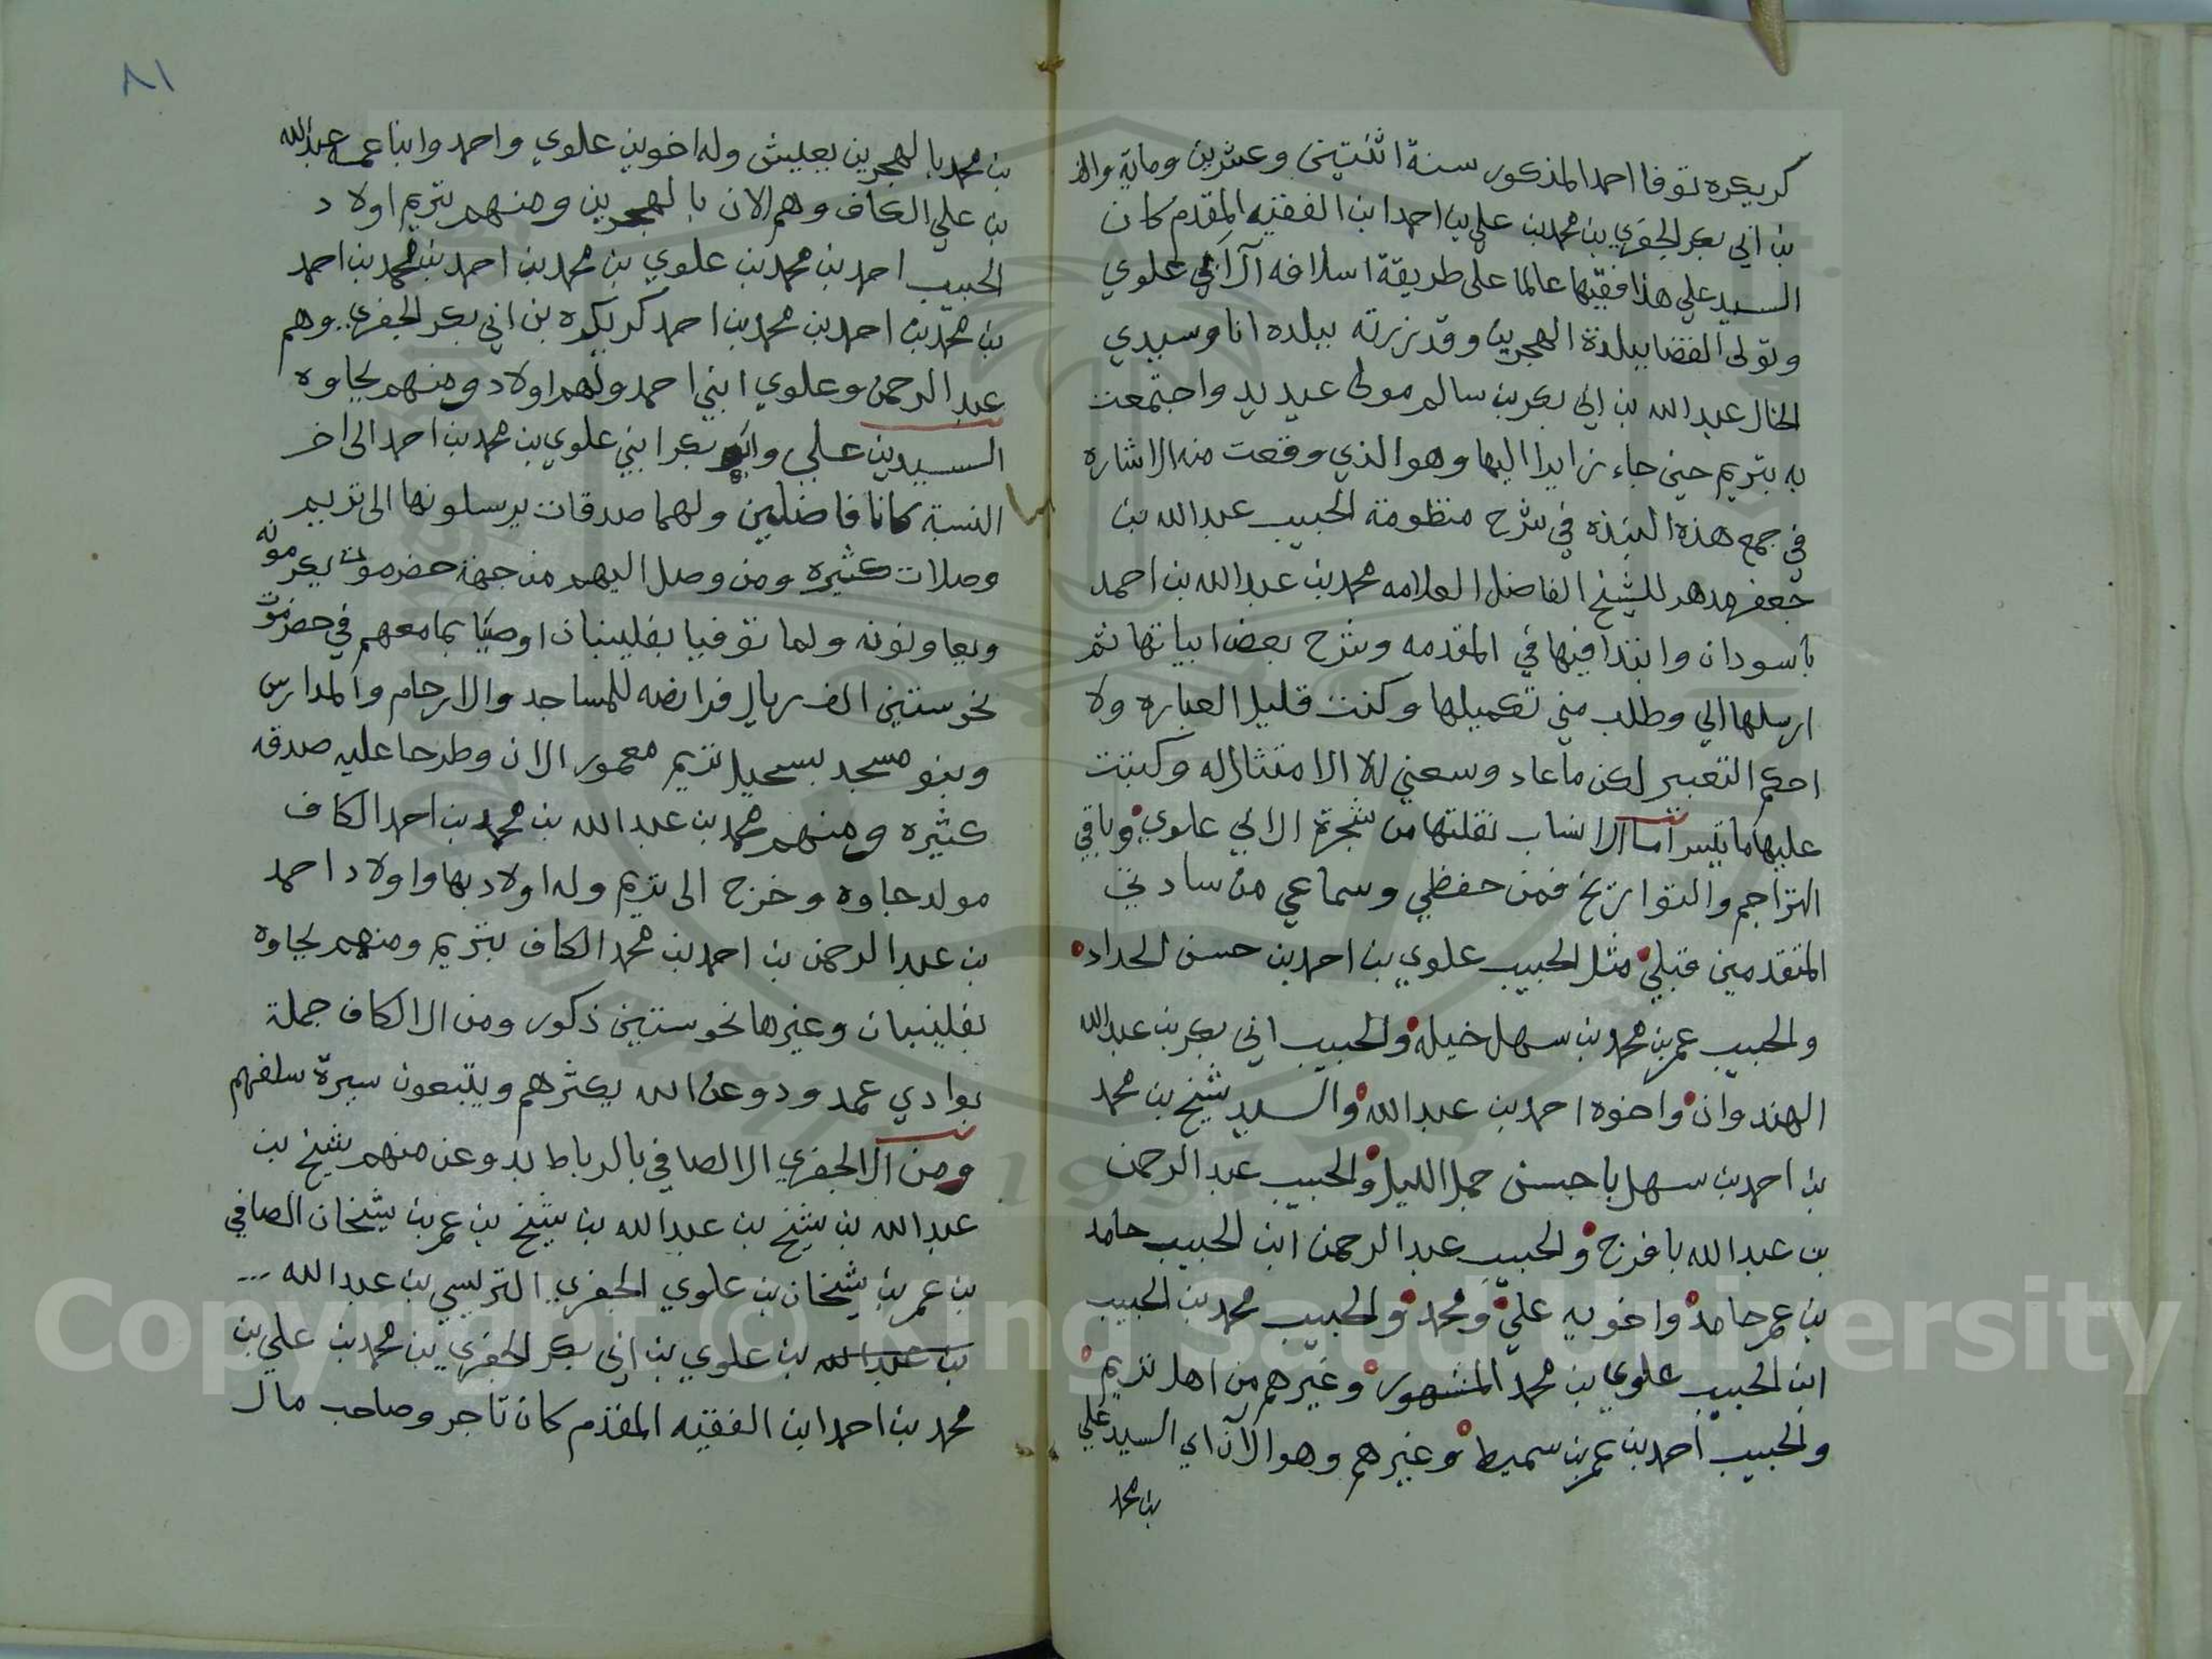 كريكره توفا احمد المذكور سنة اثنتين وعشرين وماية والف
بن ابي بكر الجفري بن محمد بن علي بن احمد ابن الفقيه المقدم كان
السيد علي هذا فقيها عالما على طريقة اسلافه آل ابي علوي
وتولى القضا ببلدة الهجرين وقد زرته ببلده انا وسيدي
الخال عبد الله بن ابي بكر بن سالم مولى عيديد واجتمعت
به بتريم حين جاء زايرا اليها وهو الذي وقعت منه الاشاره
في جمع هذه النبذه في شرح منظومة الحبيب عبد الله بن
جعفر مدهر للشيخ الفاضل العلامه محمد بن عبد الله بن احمد
باسودان وابتدا فيها في المقدمه وشرح بعض ابياتها ثم
ارسلها الي وطلب مني تكميلها وكنت قليل العباره ولا
احكم التعبير لكن ما عاد وسعني الا الامتثال له وكتبت
عليها ما تيسر اما الانساب نقلتها من شجرة ال ابي علوي وباقي
التراجم والتواريخ فمن حفظي وسماعي من سادتي
المتقدمين قبلي مثل الحبيب علوي بن احمد بن حسن الحداد
والحبيب عمر بن محمد بن سهل خيله والحبيب ابي بكر بن عبد الله
الهندوان واخوه احمد بن عبد الله والسيد شيخ بن محمد
بن احمد بن سهل باحسن جمل الليل والحبيب عبد الرحمن
بن عبد الله بافرج والحبيب عبد الرحمن ابن الحبيب حامد
بن عمر حامد واخويه علي ومحمد والحبيب محمد بن الحبيب
ابن الحبيب علوي بن محمد المشهور وغيرهم من اهل تريم
والحبيب احمد بن عمر بن سميط وغيرهم وهو الآن اي السيد علي
بن محمد
٨١
بن محمد بالهجرين بعيش وله اخوين علوي واحمد وابنا عمه عبد الله
بن علي الكاف وهم الان بالهجرين ومنهم بتريم اولاد
الحبيب احمد بن محمد بن علوي بن محمد بن احمد بن محمد بن احمد
بن محمد بن احمد بن محمد بن احمد كريكره بن ابي بكر الجفري وهم
عبد الرحمن وعلوي ابني احمد ولهم اولاد ومنهم بجاوه
السيدين علي وابو بكر ابني علوي بن محمد بن احمد الى اخر
النسبة كانا فاضلين ولهما صدقات يرسلونها الى تريم
وصلات كثيره ومن وصل اليهم من جهة حضرموت يكرمونه
ويعاونونه ولما توفيا بفلينبان اوصيا بما معهم في حضرموت
نحو ستين الف ريال فرانصه للمساجد والارحام والمدارس
وبنو مسجد بسحيل تريم معمور الان وطرحا عليه صدقه
كثيره ومنهم محمد بن عبد الله بن محمد بن احمد الكاف
مولد جاوه وخرج الى تريم وله اولاد بها واولاد احمد
بن عبد الرحمن بن احمد بن محمد الكاف بتريم ومنهم بجاوه
بفلينبان وغيرها نحو ستين ذكور ومن ال الكاف جملة
بوادي عمد ودوعن الله يكثرهم ويتبعون سيرة سلفهم
ومن ال الجفري ال الصافي بالرباط بدوعن منهم شيخ بن
عبد الله بن شيخ بن عبد الله بن شيخ بن عمر بن شيخان الصافي
بن عمر بن شيخان بن علوي الجفري التريسي بن عبد الله ...
بن عبد الله بن علوي بن ابي بكر الجفري بن محمد بن علي بن
محمد بن احمد ابن الفقيه المقدم كان تاجر وصاحب مال
Copyright © King Saud University